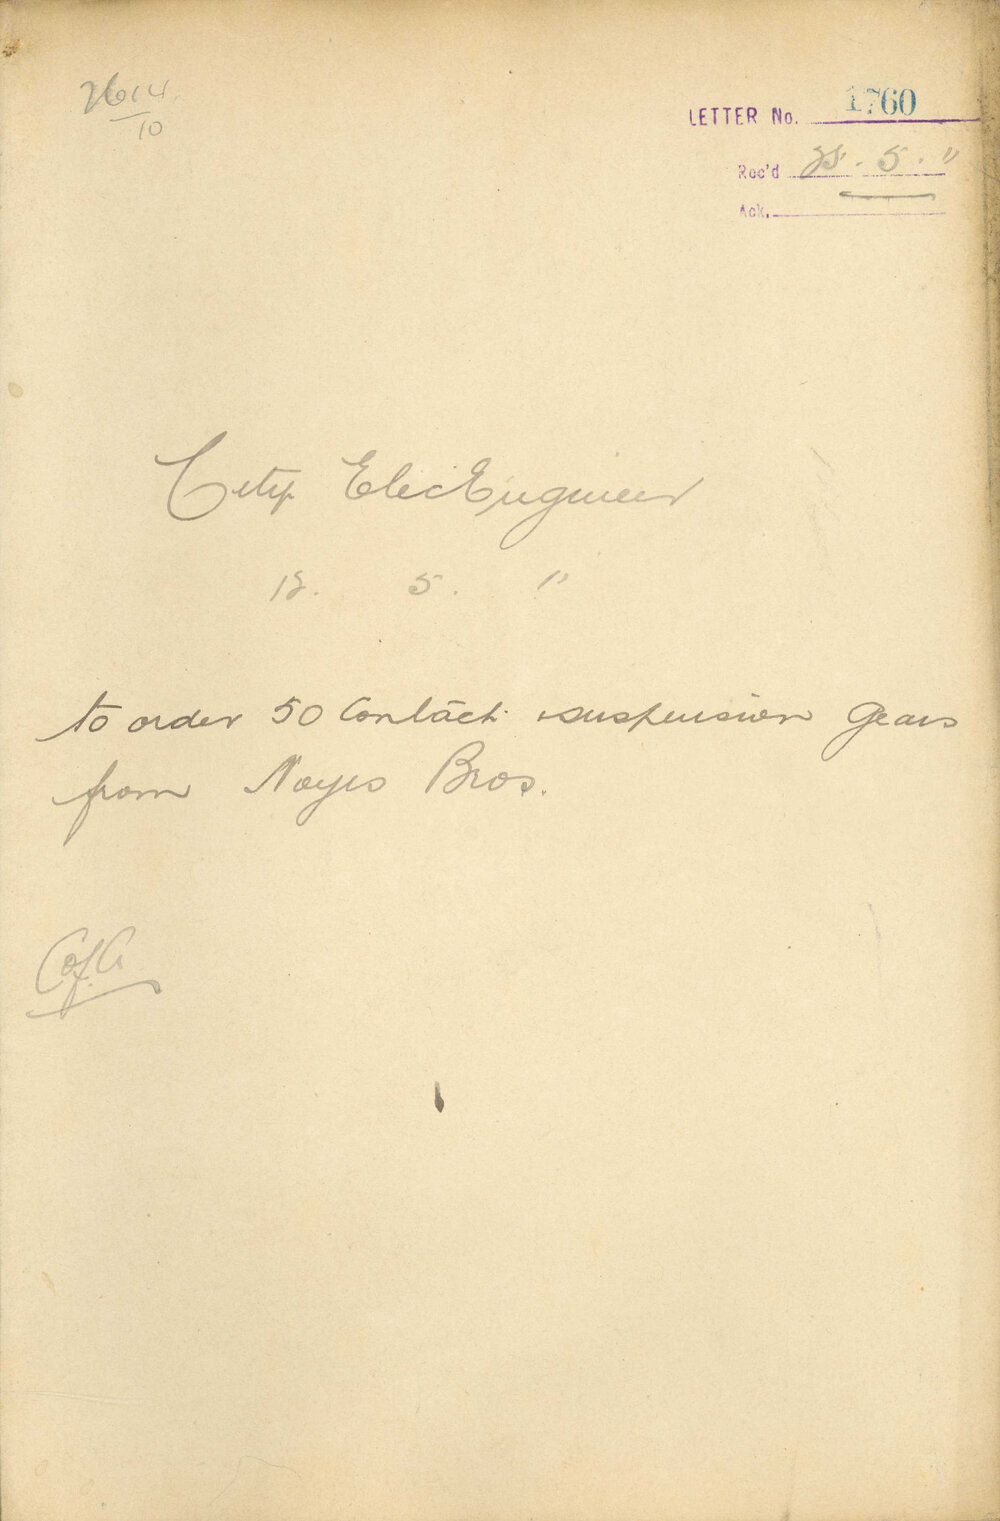 2614
10
LETTER No. 1760
Rec'd 5. "
Ack.
City Elec Engineer
18. 5. "
to order 50 Contact suspension Gears
from Noyes Bros.